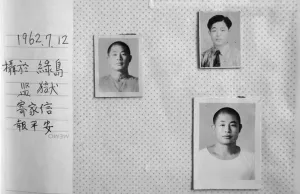 1962.7.12
攝於 綠島
監獄
寄家信
報平安